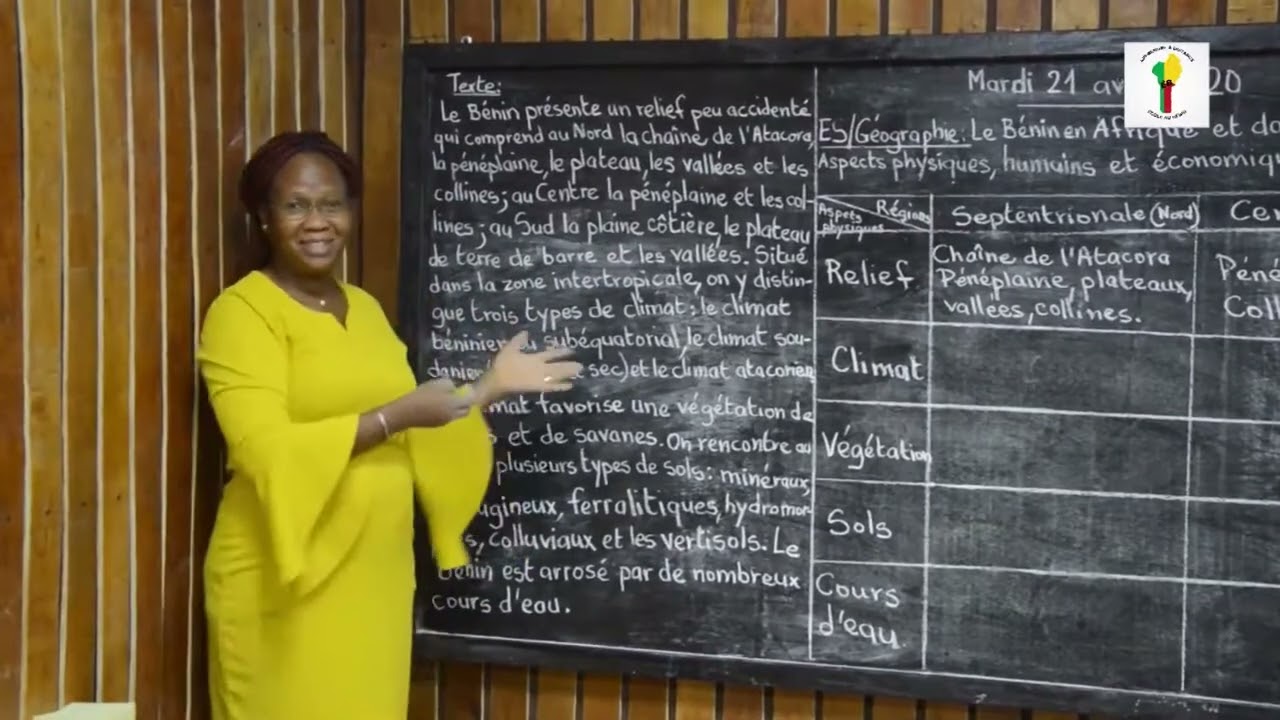 Texte:
Le Bénin présente un relief peu accidenté
qui comprend au Nord la chaîne de l'Atacora,
la pénéplaine, le plateau, les vallées et les
collines; au Centre la pénéplaine et les col-
lines; au Sud la plaine côtière, le plateau
de terre de barre et les vallées. Situé
dans la zone intertropicale, on y distin-
gue trois types de climat: le climat
béninien subéquatorial, le climat sou-
danien sec) et le climat atacorien
mat favorise une végétation de
et de savanes. On rencontre au
plusieurs types de sols: minéraux,
ugineux, ferralitiques, hydromor-
s, colluviaux et les vertisols. Le
Bénin est arrosé par de nombreux
cours d'eau.
Mardi 21 av 20
ES/Géographie: Le Bénin en Afrique et da
Aspects physiques, humains et économiq
Aspets physiques
Régions
Septentrionale (Nord)
Cen
Relief
Chaîne de l'Atacora
Pénéplaine, plateaux,
vallées, collines.
Péné
Coll
Climat
Végétation
Sols
Cours
d'eau